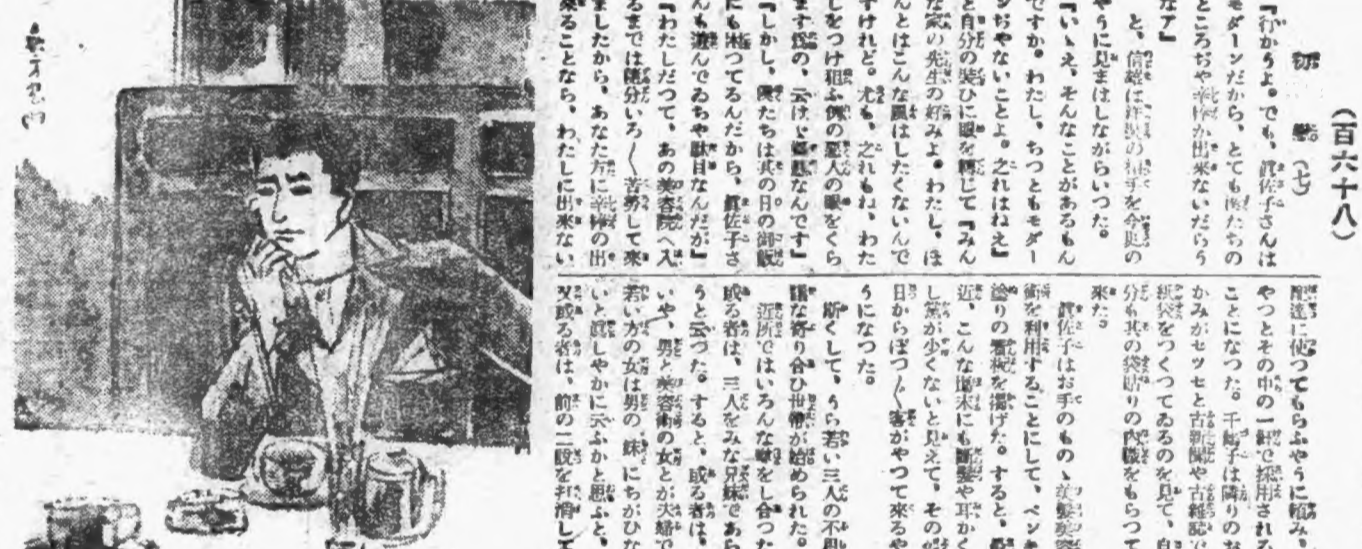 （百六十八）
（七）
『行かうよ。でも、眞佐子さんは
モダーンだから、とても僕たちの
ところぢや辛棒が出来ないだらう
なア』
と、信雄は の相手を今更の
やうに見まはしながらいつた。
『いゝえ、そんなことがあるもん
ですか。わたし、ちつともモダー
ンぢやないことよ。之れはねえ』
と自分の装ひに眼を轉じて『みん
な家の先生の好みよ。わたし、ほ
んとはこんな風はしたくないんで
すけれど。尤も、之れもね、わた
しをつけ狙ふ例の惡人の眼をくら
ます爲の、云はゞ なんです』
『しかし、僕たちは其の日の御飯
にも困つてるんだから、眞佐子さ
んも遊んでゐちや駄目なんだが』
『わたしだつて、あの美容院へ入
るまでは隨分いろ〳〵苦勞して來
ましたから、あなた方に辛棒の出
來ることなら、わたしに出來ない
配達に使つてもらふやうに頼み、
やつとその中の一軒で採用される
ことになつた。千鶴子は隣りのお
かみがセツセと古新聞や古雜誌で
紙袋をつくつてゐるのを見て、自
分も其の袋貼りの内職をもらつて
來た。
眞佐子はお手のものゝ美髪美容
術を利用することにして、ペンキ
塗りの看板を揚げた。すると、最
近、こんな場末にも斷髪や耳かく
し黨が少くないと見えて、その
日からぽつ〳〵客がやつて來るや
うになつた。
斯くして、うら若い三人の不思
議な寄り合ひ世帶が始められた。
近所ではいろんな噂をし合つた
或る者は、三人をみな兄妹であら
うと云つた。すると、或る者は、
いや、男と美容術の女とが夫婦で
若い方の女は男の妹にちがひな
いと眞しやかに云ふかと思ふと、
又或る者は、前の二説を打消して